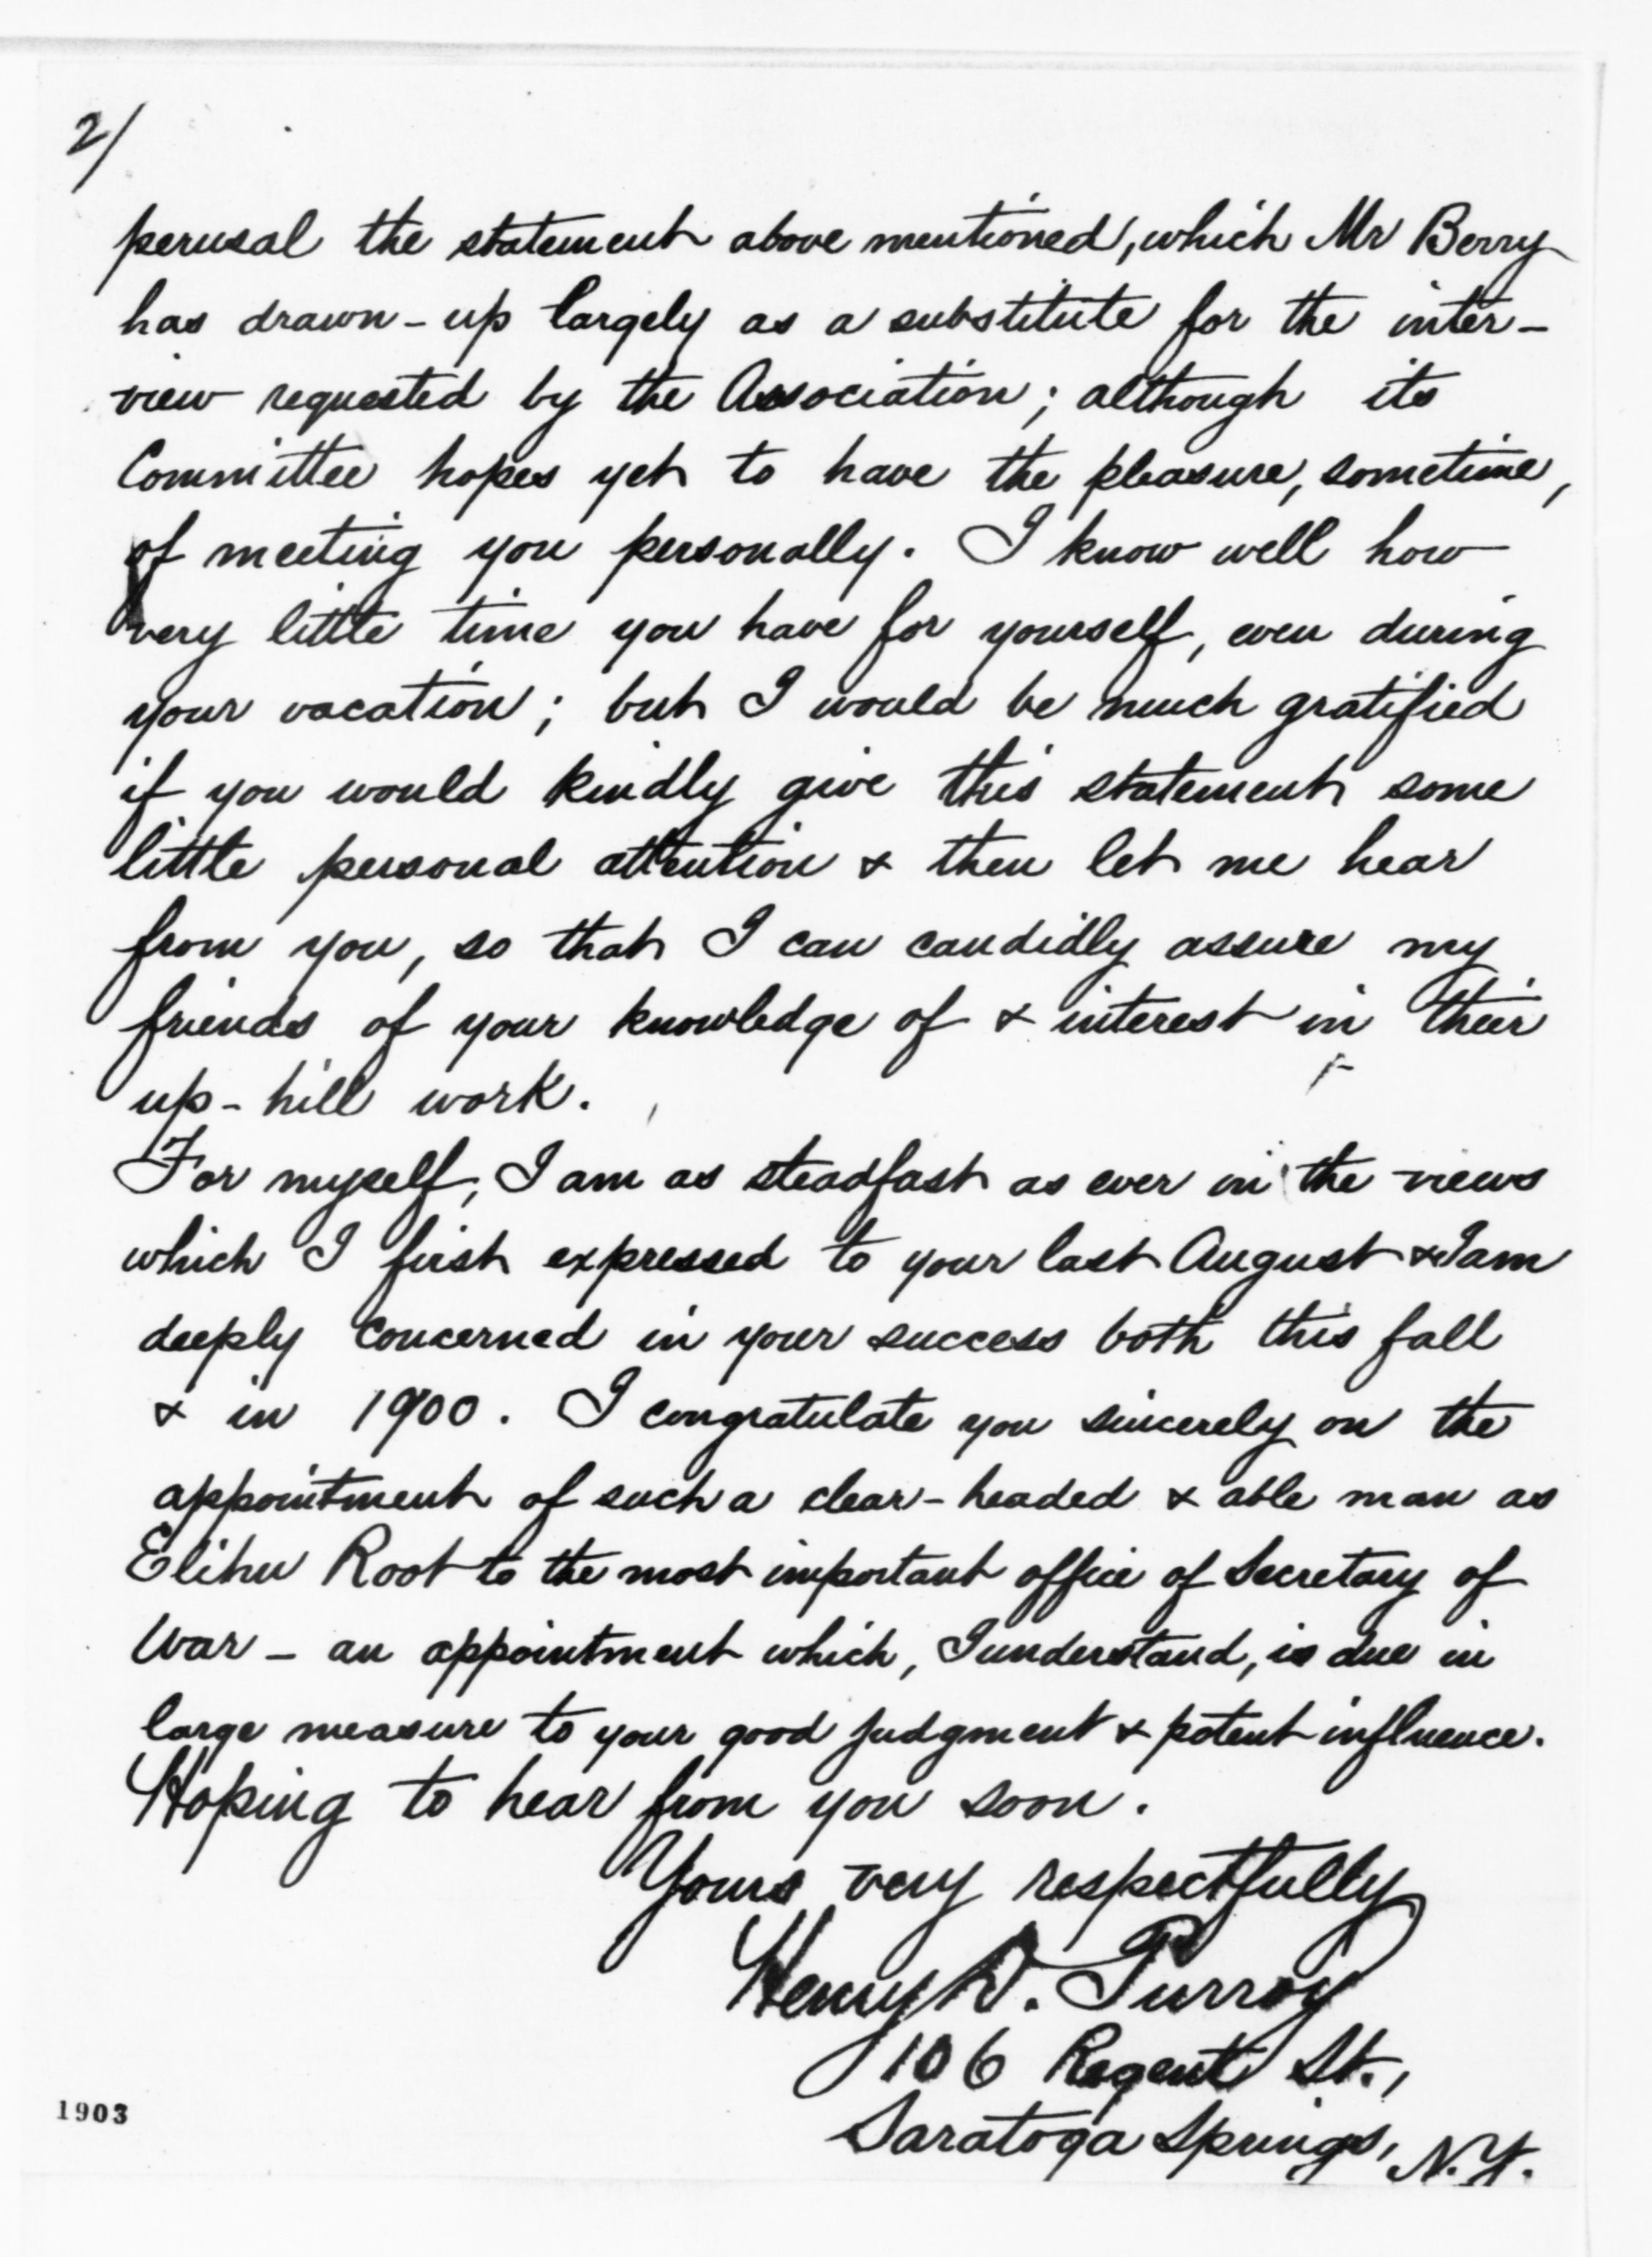 2/
perusal the statement above mentioned, which Mr Berry
has drawn-up largely as a substitute for the inter-
view requested by the Association; although its
Committee hopes yet to have the pleasure, sometime,
of meeting you personally. I know well how
very little time you have for yourself, even during
your vacation; but I would be much gratified
if you would kindly give this statement some
little personal attention & then let me hear
from you, so that I can candidly assure my
friends of your knowledge of & interest in their
up-hill work.
For myself, I am as steadfast as ever in the views
which I first expressed to your last August & I am
deeply concerned in your success both this fall
& in 1900. I congratulate you sincerely on the
appointment of such a clear-headed & able man as
Elihu Root to the most important office of Secretary of
War - an appointment which, I understand, is due in
large measure to your good judgment & potent influence.
Hoping to hear from you soon.
Yours very respectfully
Henry D. Purroy
106 Regent St.,
Saratoga Springs, N.Y.
1903